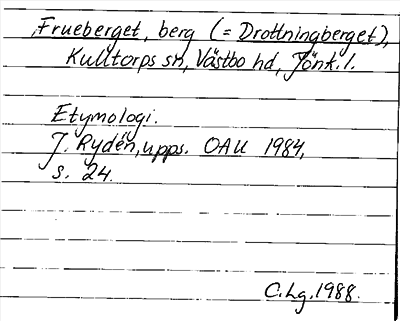 Frueberget, berg (= Drottningberget),
Kulltorps sn, Västbo hd, Jönk. l.
Etymologi.
J. Rydén, upps. OAU 1984,
s. 24.
C. Lg. 1988.